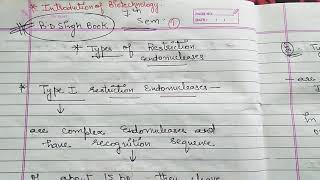 * Introduction of Biotechnology
7th Sem. ①
* B.D Singh Book
* Types of Restriction
endonucleases
* Type I restriction Endonucleases -
are complex Endonucleases and
have recognition sequence
of about 15 bp They cleave
- are
In